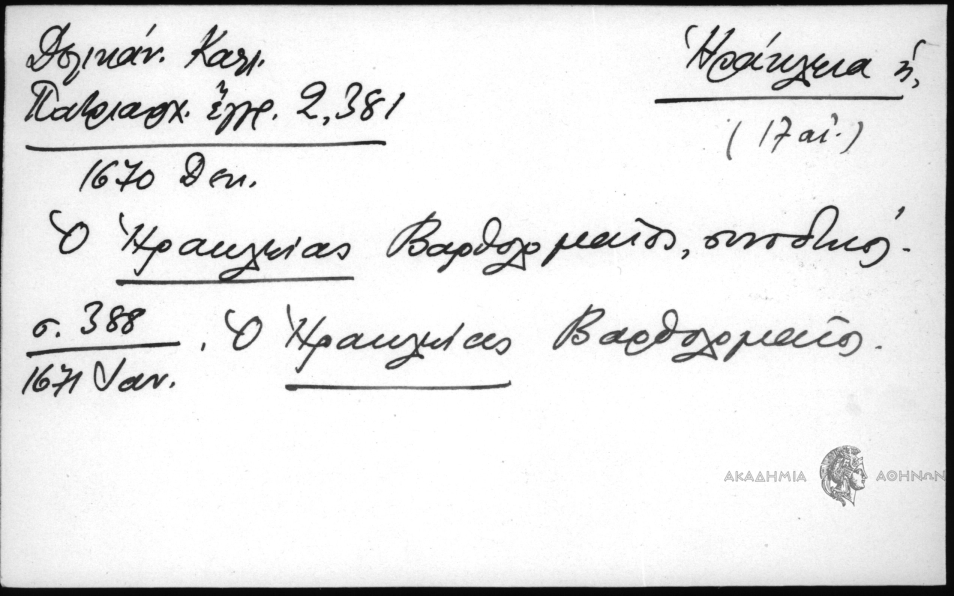 Δελικάν. Καλ.
Πατριαρχ. ἔγγρ. 2,381
Ἡράκλεια ἡ,
(17 αἰ.)
1670 Δεκ.
Ὁ Ἡρακλείας Βαρθολομαῖος, συνοδικός.
σ. 388
1671 Ἰαν.
Ὁ Ἡρακλείας Βαρθολομαῖος.
ΑΚΑΔΗΜΙΑ ΑΘΗΝΩΝ